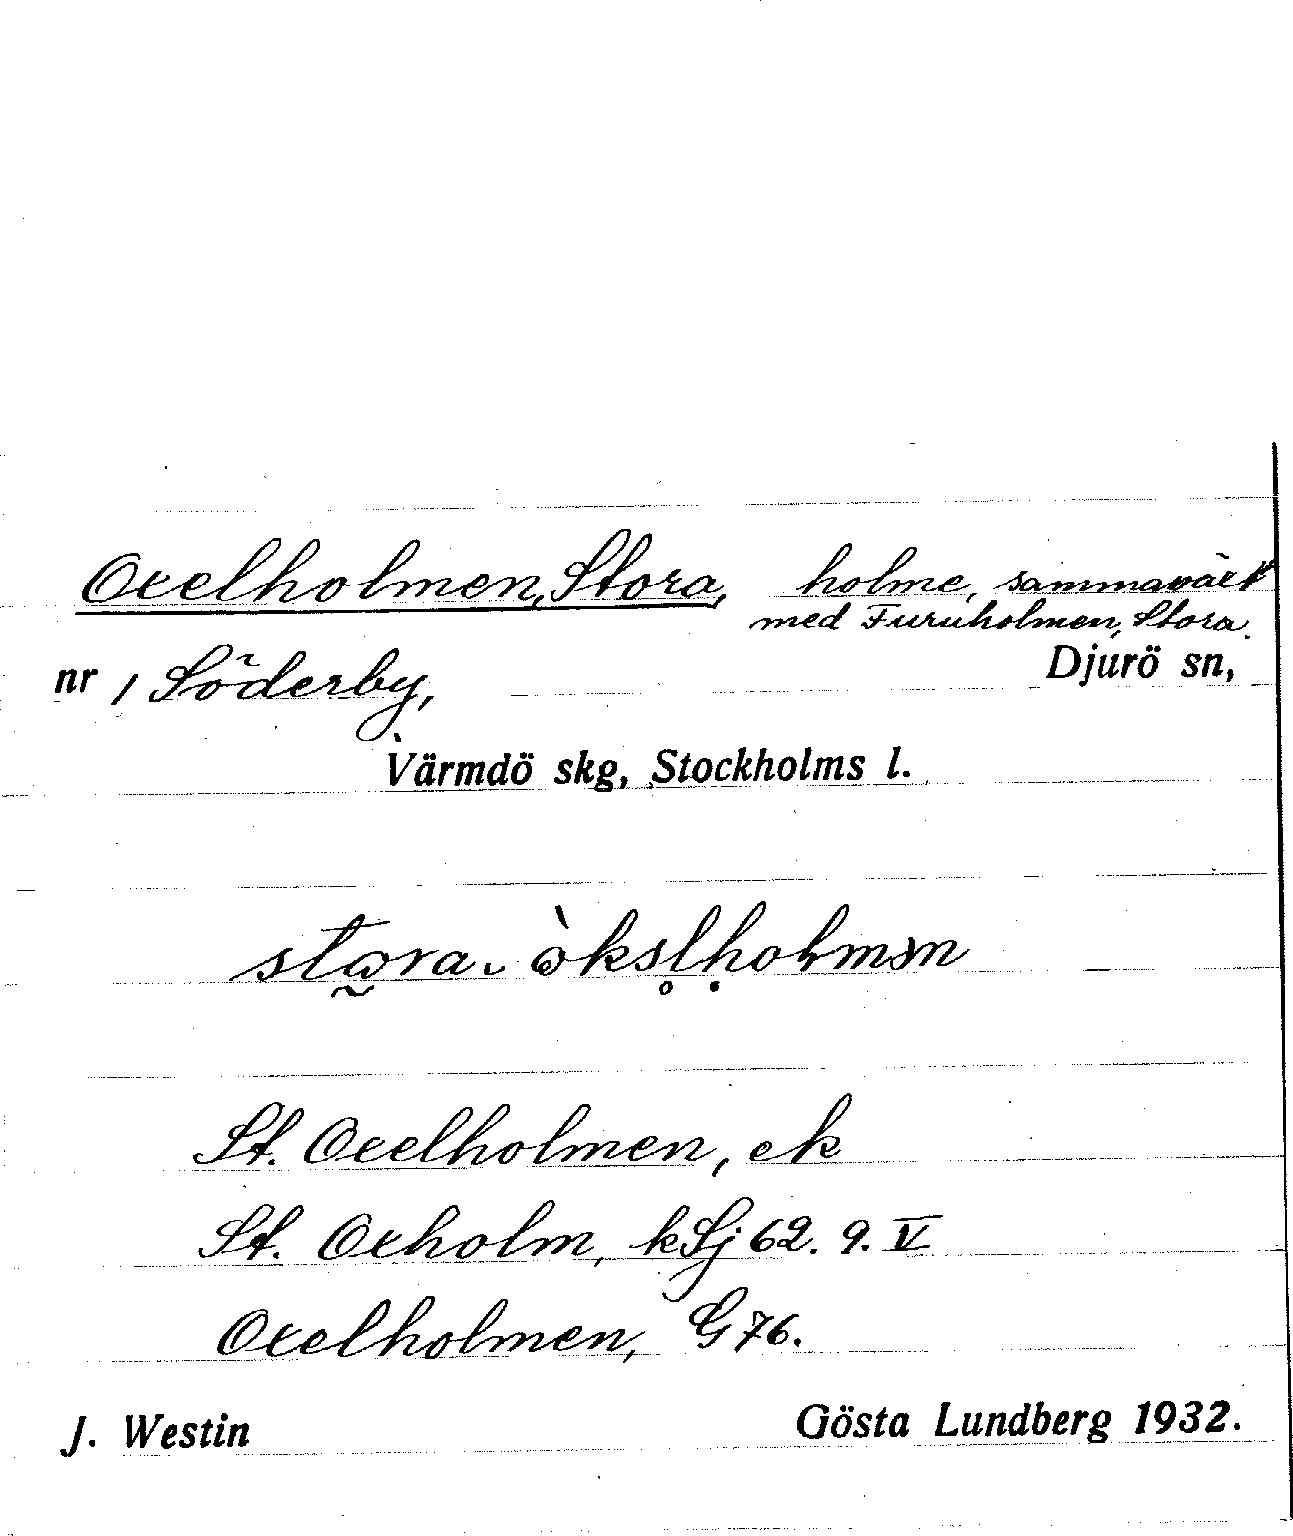 Oxelholmen, Stora, holme, sammaväxt
med Furuholmen, Stora.
nr 1 Söderby, Djurö sn,
Värmdö skg, Stockholms l.
St. Oxelholmen, ek
St. Oxholm, kSj 62. 9. V
Oxelholmen, G 76.
J. Westin Gösta Lundberg 1932.